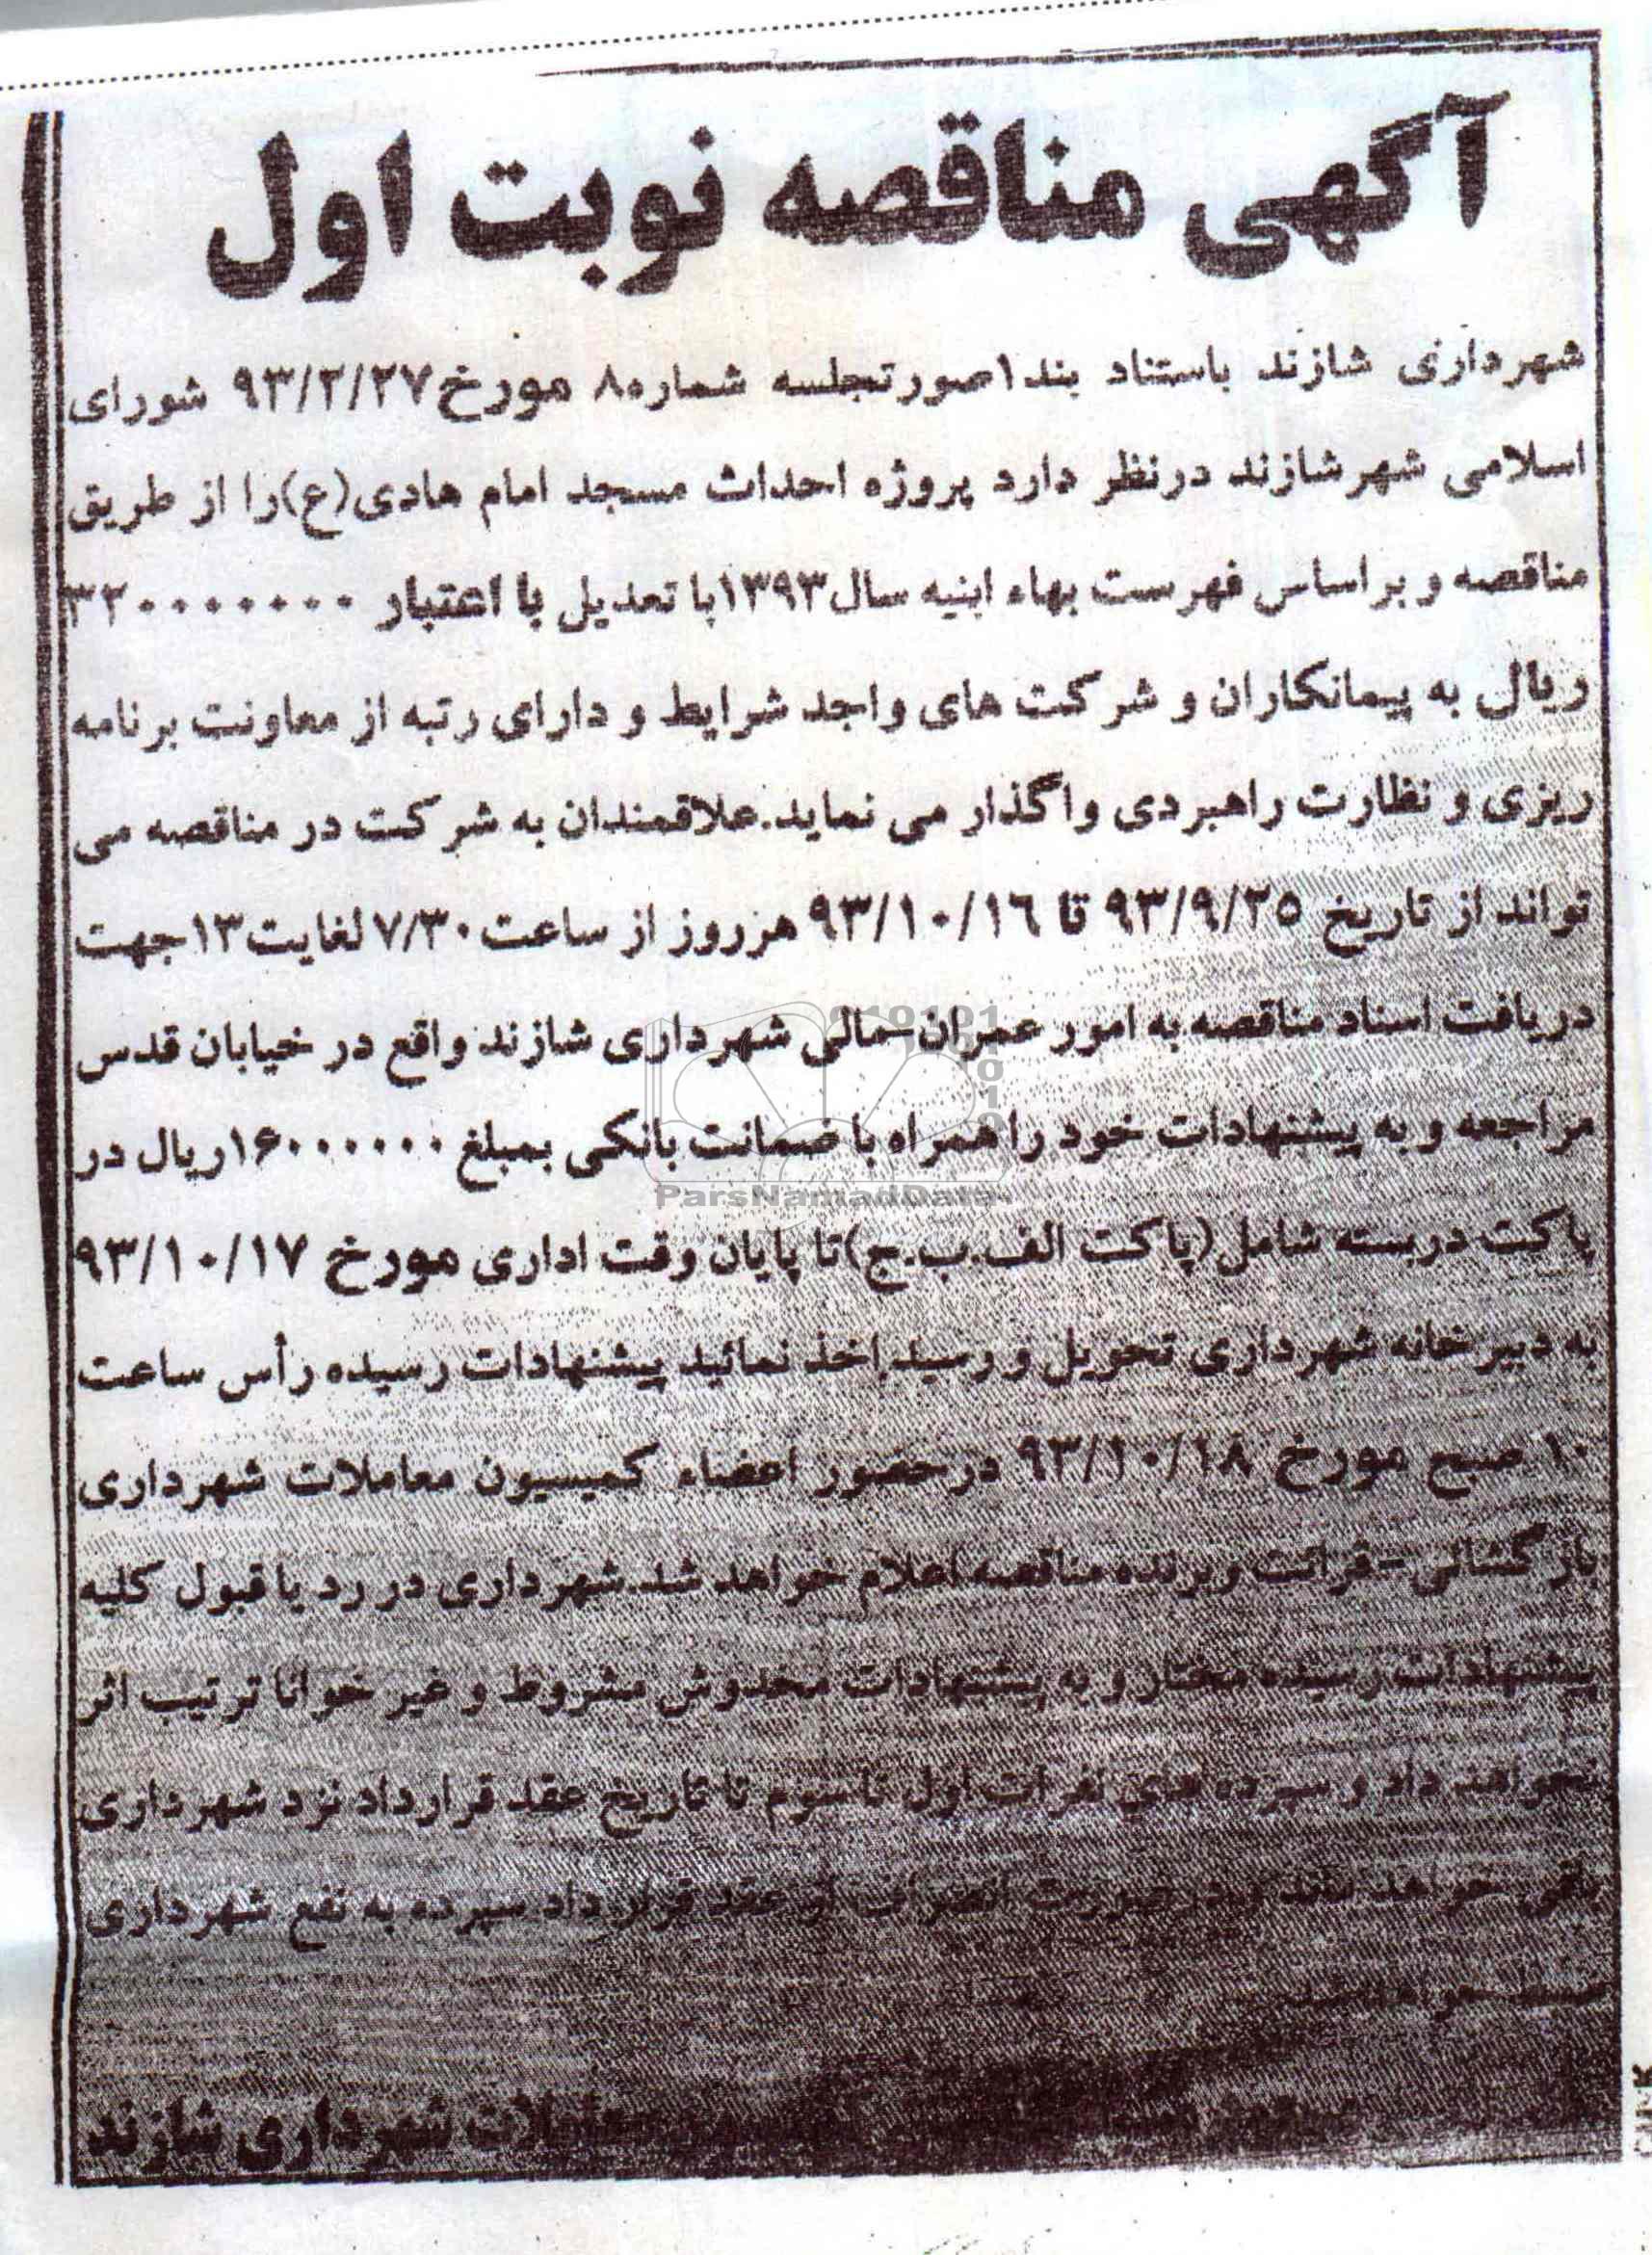 آگهی مناقصه نوبت اول
شهرداری شازند باستناد بند۱صورتجلسه شماره۸ مورخ۹۳/۲/۲۷ شورای
اسلامی شهرشازند درنظر دارد پروژه احداث مسجد امام هادی(ع)را از طریق
مناقصه و براساس فهرست بهاء ابنیه سال۱۳۹۳با تعدیل با اعتبار
ریال به پیمانکاران و شرکت های واجد شرایط و دارای رتبه از معاونت برنامه
ریزی و نظارت راهبردی واگذار می نماید.علاقمندان به شرکت در مناقصه می
تواند از تاریخ ۹۳/۹/۲۵ تا ۹۳/۱۰/۱۶ هرروز از ساعت۷/۳۰ لغایت۱۳جهت
دریافت اسناد مناقصه به امور عمران-مالی شهرداری شازند واقع در خیابان قدس
مراجعه و به پیشنهادات خود را همراه با ضمانت بانکی بمبلغ ۱۶۰۰۰۰۰۰۰ریال در
پاکت دربسته شامل(پاکت الف.ب.ج)تا پایان وقت اداری مورخ ۹۳/۱۰/۱۷
به دبیرخانه شهرداری تحویل و رسید اخذ نمائید پیشنهادات رسیده رأس ساعت
۱۰ صبح مورخ ۹۳/۱۰/۱۸ درحضور اعضاء کمیسیون معاملات شهرداری
بازگشائی-قرائت و برنده مناقصه اعلام خواهد شد.شهرداری در رد یا قبول کلیه
پیشنهادات رسیده مختار و به پیشنهادات مخدوش مشروط و غیر خوانا ترتیب اثر
نخواهد داد و سپرده های نفرات اول تا سوم تا تاریخ عقد قرارداد نزد شهرداری
باقی خواهد ماند و در صورت انصراف از عقد قرار داد سپرده به نفع شهرداری
خواهد شد
معاملات شهرداری شازند
ParsNamadData